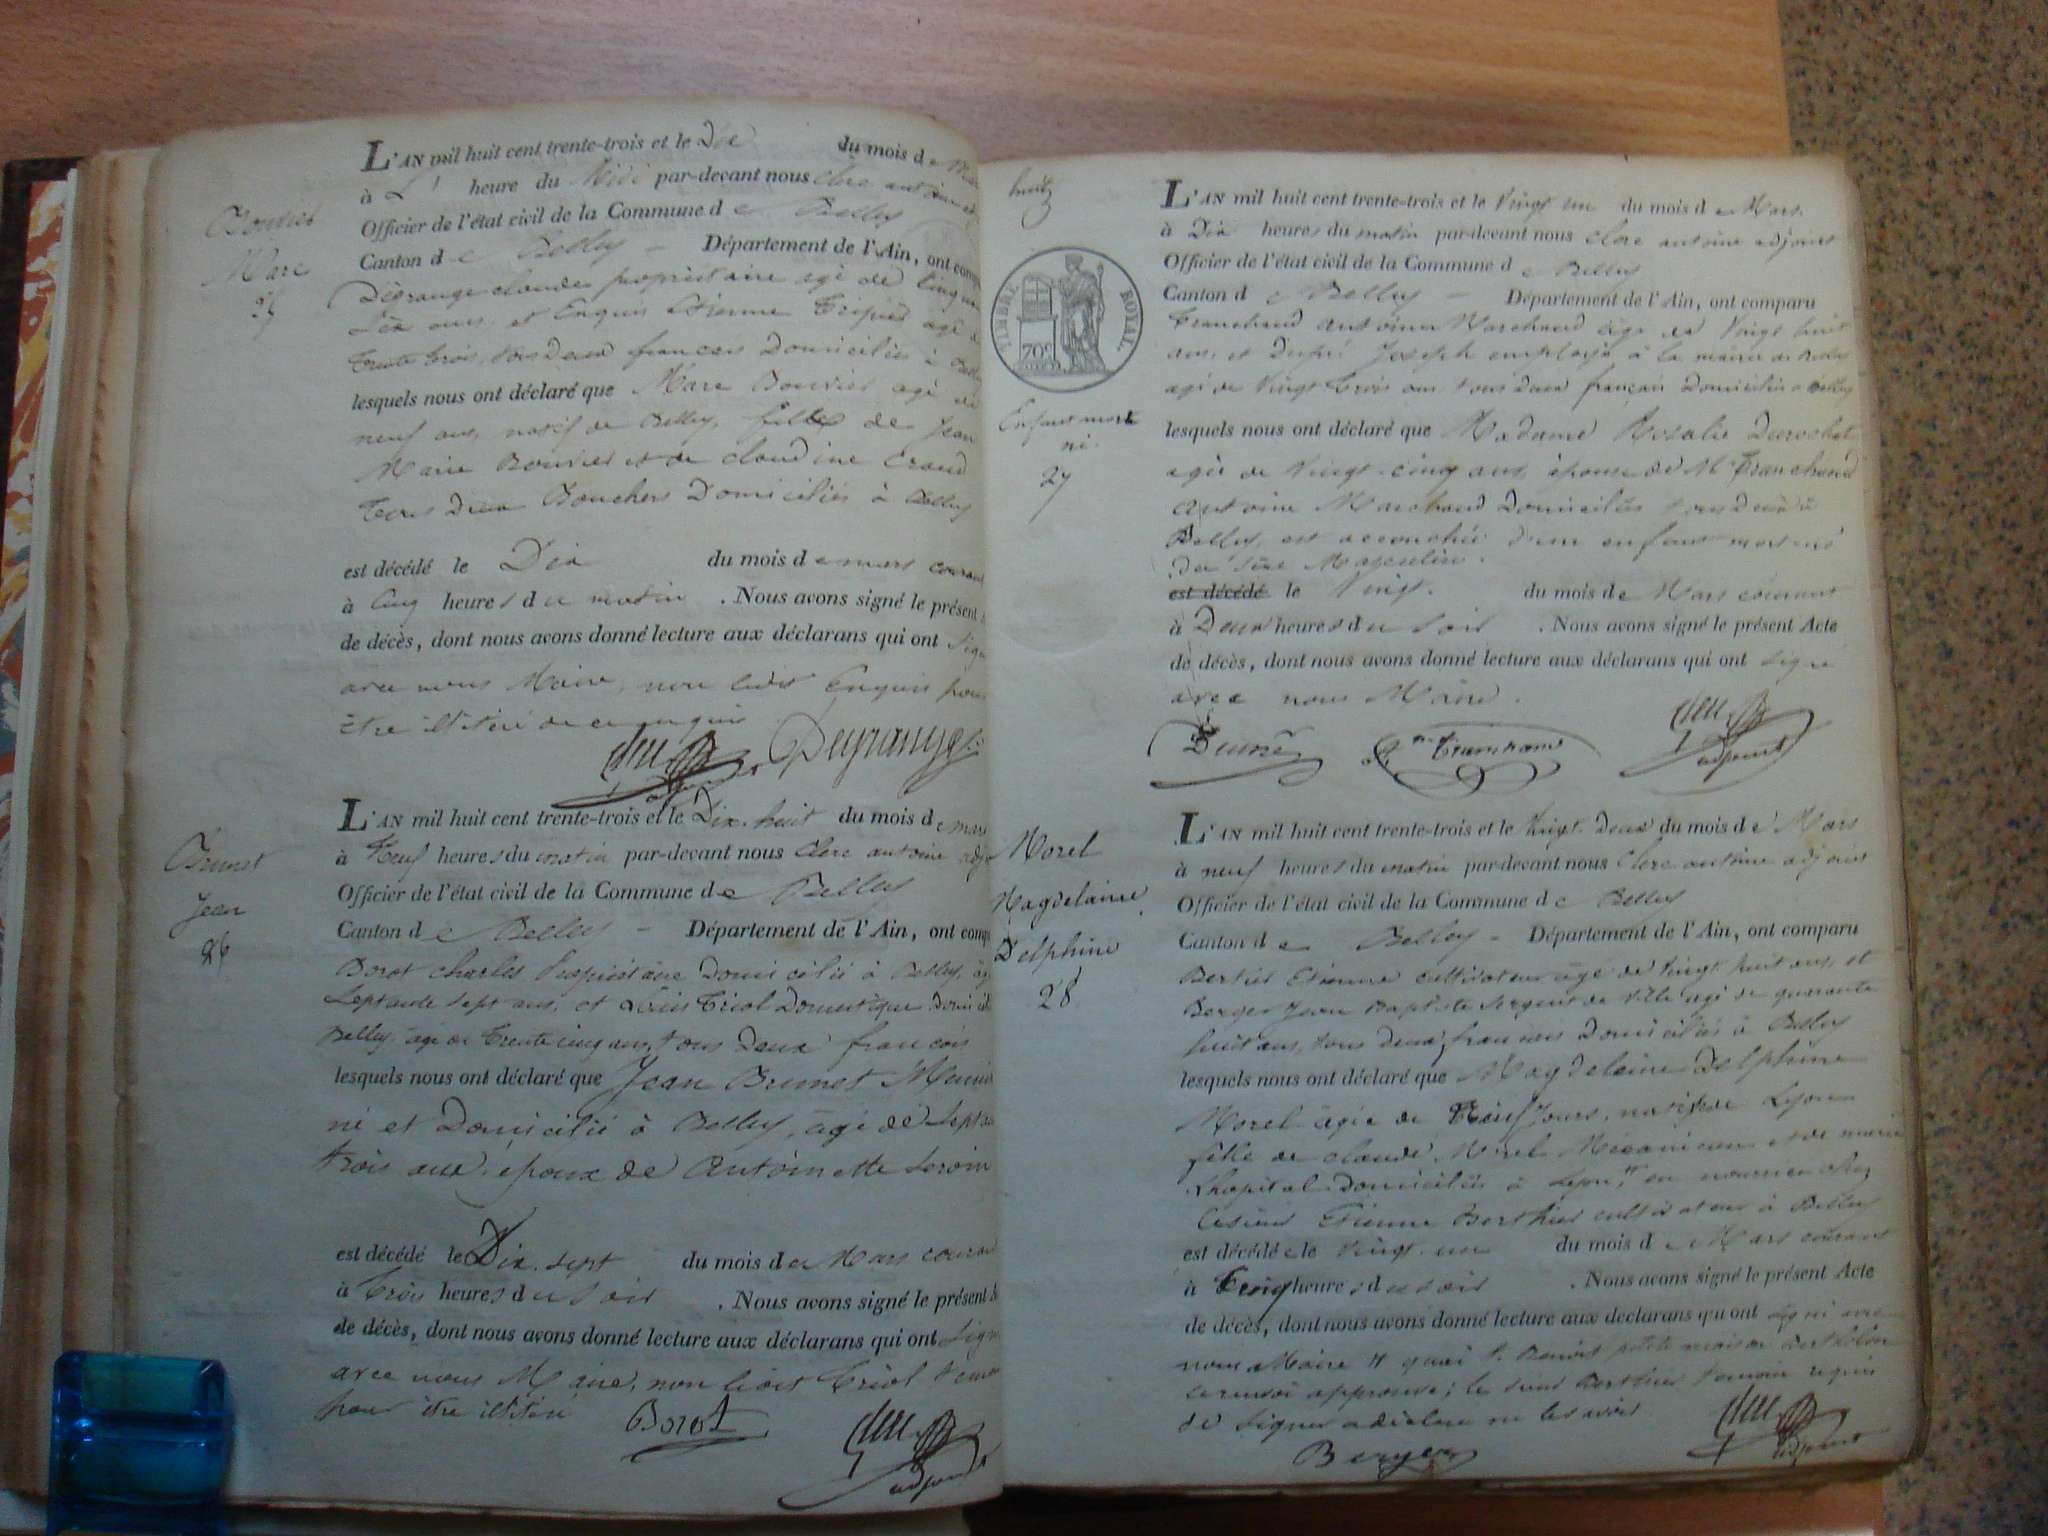 Bouvier
Marc
25
L'AN mil huit cent trente-trois et le Dix du mois de Mars
à L' heure du Midi par-devant nous Clerc antoine
Officier de l'état civil de la Commune de Belley
Canton de Belley Département de l'Ain, ont comparu
Degrange claude propriétaire agé de Cinquante
Dix ans et Enquin Etienne agé de
trente trois, tous Deux francais Domiciliés à Belley
lesquels nous ont déclaré que Marc Bouvier agé de
neuf ans, natif de Belley, fils de Jean
Marie Bouvier et de Claudine
tous Deux Bouchers Domiciliés à Belley
est décédé le Dix du mois de mars courant
à Cinq heures du matin. Nous avons signé le présent
de décès, dont nous avons donné lecture aux déclarans qui ont signé
avec nous Maire, non ledit Enquin pour
être illitéré de ce enquis
Degrange
Brunet
Jean
26
L'AN mil huit cent trente-trois et le Dix-huit du mois de mars
à Neuf heures du matin par-devant nous Clerc antoine adjoint
Officier de l'état civil de la Commune de Belley
Canton de Belley - Département de l'Ain, ont comparu
Borot charles Propriétaire Domicilié à Belley, agé
Septante sept ans, et Louis Triol Domestique Domicilié
Belley agé de trente cinq ans, tous Deux francois
lesquels nous ont déclaré que Jean Brunet
né et Domicilié à Belley, agé de Septante
trois ans, époux de Antoinette
est décédé le Dix-sept du mois de Mars courant
à trois heures du soir. Nous avons signé le présent
de décès, dont nous avons donné lecture aux déclarans qui ont signé
avec nous Maire, non Triol témoin
pour être illitéré
Borot
adjoint
huit
TIMBRE ROYAL.
70c
Enfant mort
né.
27
L'AN mil huit cent trente-trois et le Vingt un du mois de Mars.
à Dix heures du matin par-devant nous Clerc antoine adjoint
Officier de l'état civil de la Commune de Belley
Canton de Belley - Département de l'Ain, ont comparu
Tranchand Antoine Marchand agé de Vingt huit
ans, et Dupré Joseph employé à la mairie de Belley
agé de Vingt trois ans tous deux francais Domiciliés à Belley
lesquels nous ont déclaré que Madame Rosalie Durochat
agée de Vingt-cinq ans, épouse de Mr Tranchand
Antoine Marchand Domiciliés tous Deux à
Belley, est accouchée d'un enfant mort-né
du sexe Masculin.
est décédé le Vingt. du mois de Mars courant
à Deux heures du soir. Nous avons signé le présent Acte
de décès, dont nous avons donné lecture aux déclarans qui ont signé
avec nous Maire.
Tranchand
adjoint
Morel
Magdelaine
Delphine
28
L'AN mil huit cent trente-trois et le Vingt-Deux du mois de Mars
à neuf heures du matin par-devant nous Clerc antoine adjoint
Officier de l'état civil de la Commune de Belley
Canton de Belley - Département de l'Ain, ont comparu
Bertier Etienne cultivateur agé de Vingt huit ans, et
Berger Jean Baptiste Sergent de Ville agé de quarante
huit ans, tous Deux francais Domiciliés à Belley
lesquels nous ont déclaré que Magdeleine Delphine
Morel agée de Neuf Jours, native de Lyon
fille de Claude Morel Mécanicien et de marie
Lhopital Domiciliés à Lyon, # en nourrice chez
Le sieur Etienne Berthier cultivateur à Belley
est décédée le Vingt-un du mois de Mars courant
à Cinq heures du soir. Nous avons signé le présent Acte
de décès, dont nous avons donné lecture aux déclarans qui ont signé avec
nous Maire # quai St. Benoit petite maison
le renvoi approuvé; le sieur Berthier témoin requis
de signer a déclaré ne le savoir
Berger
adjoint